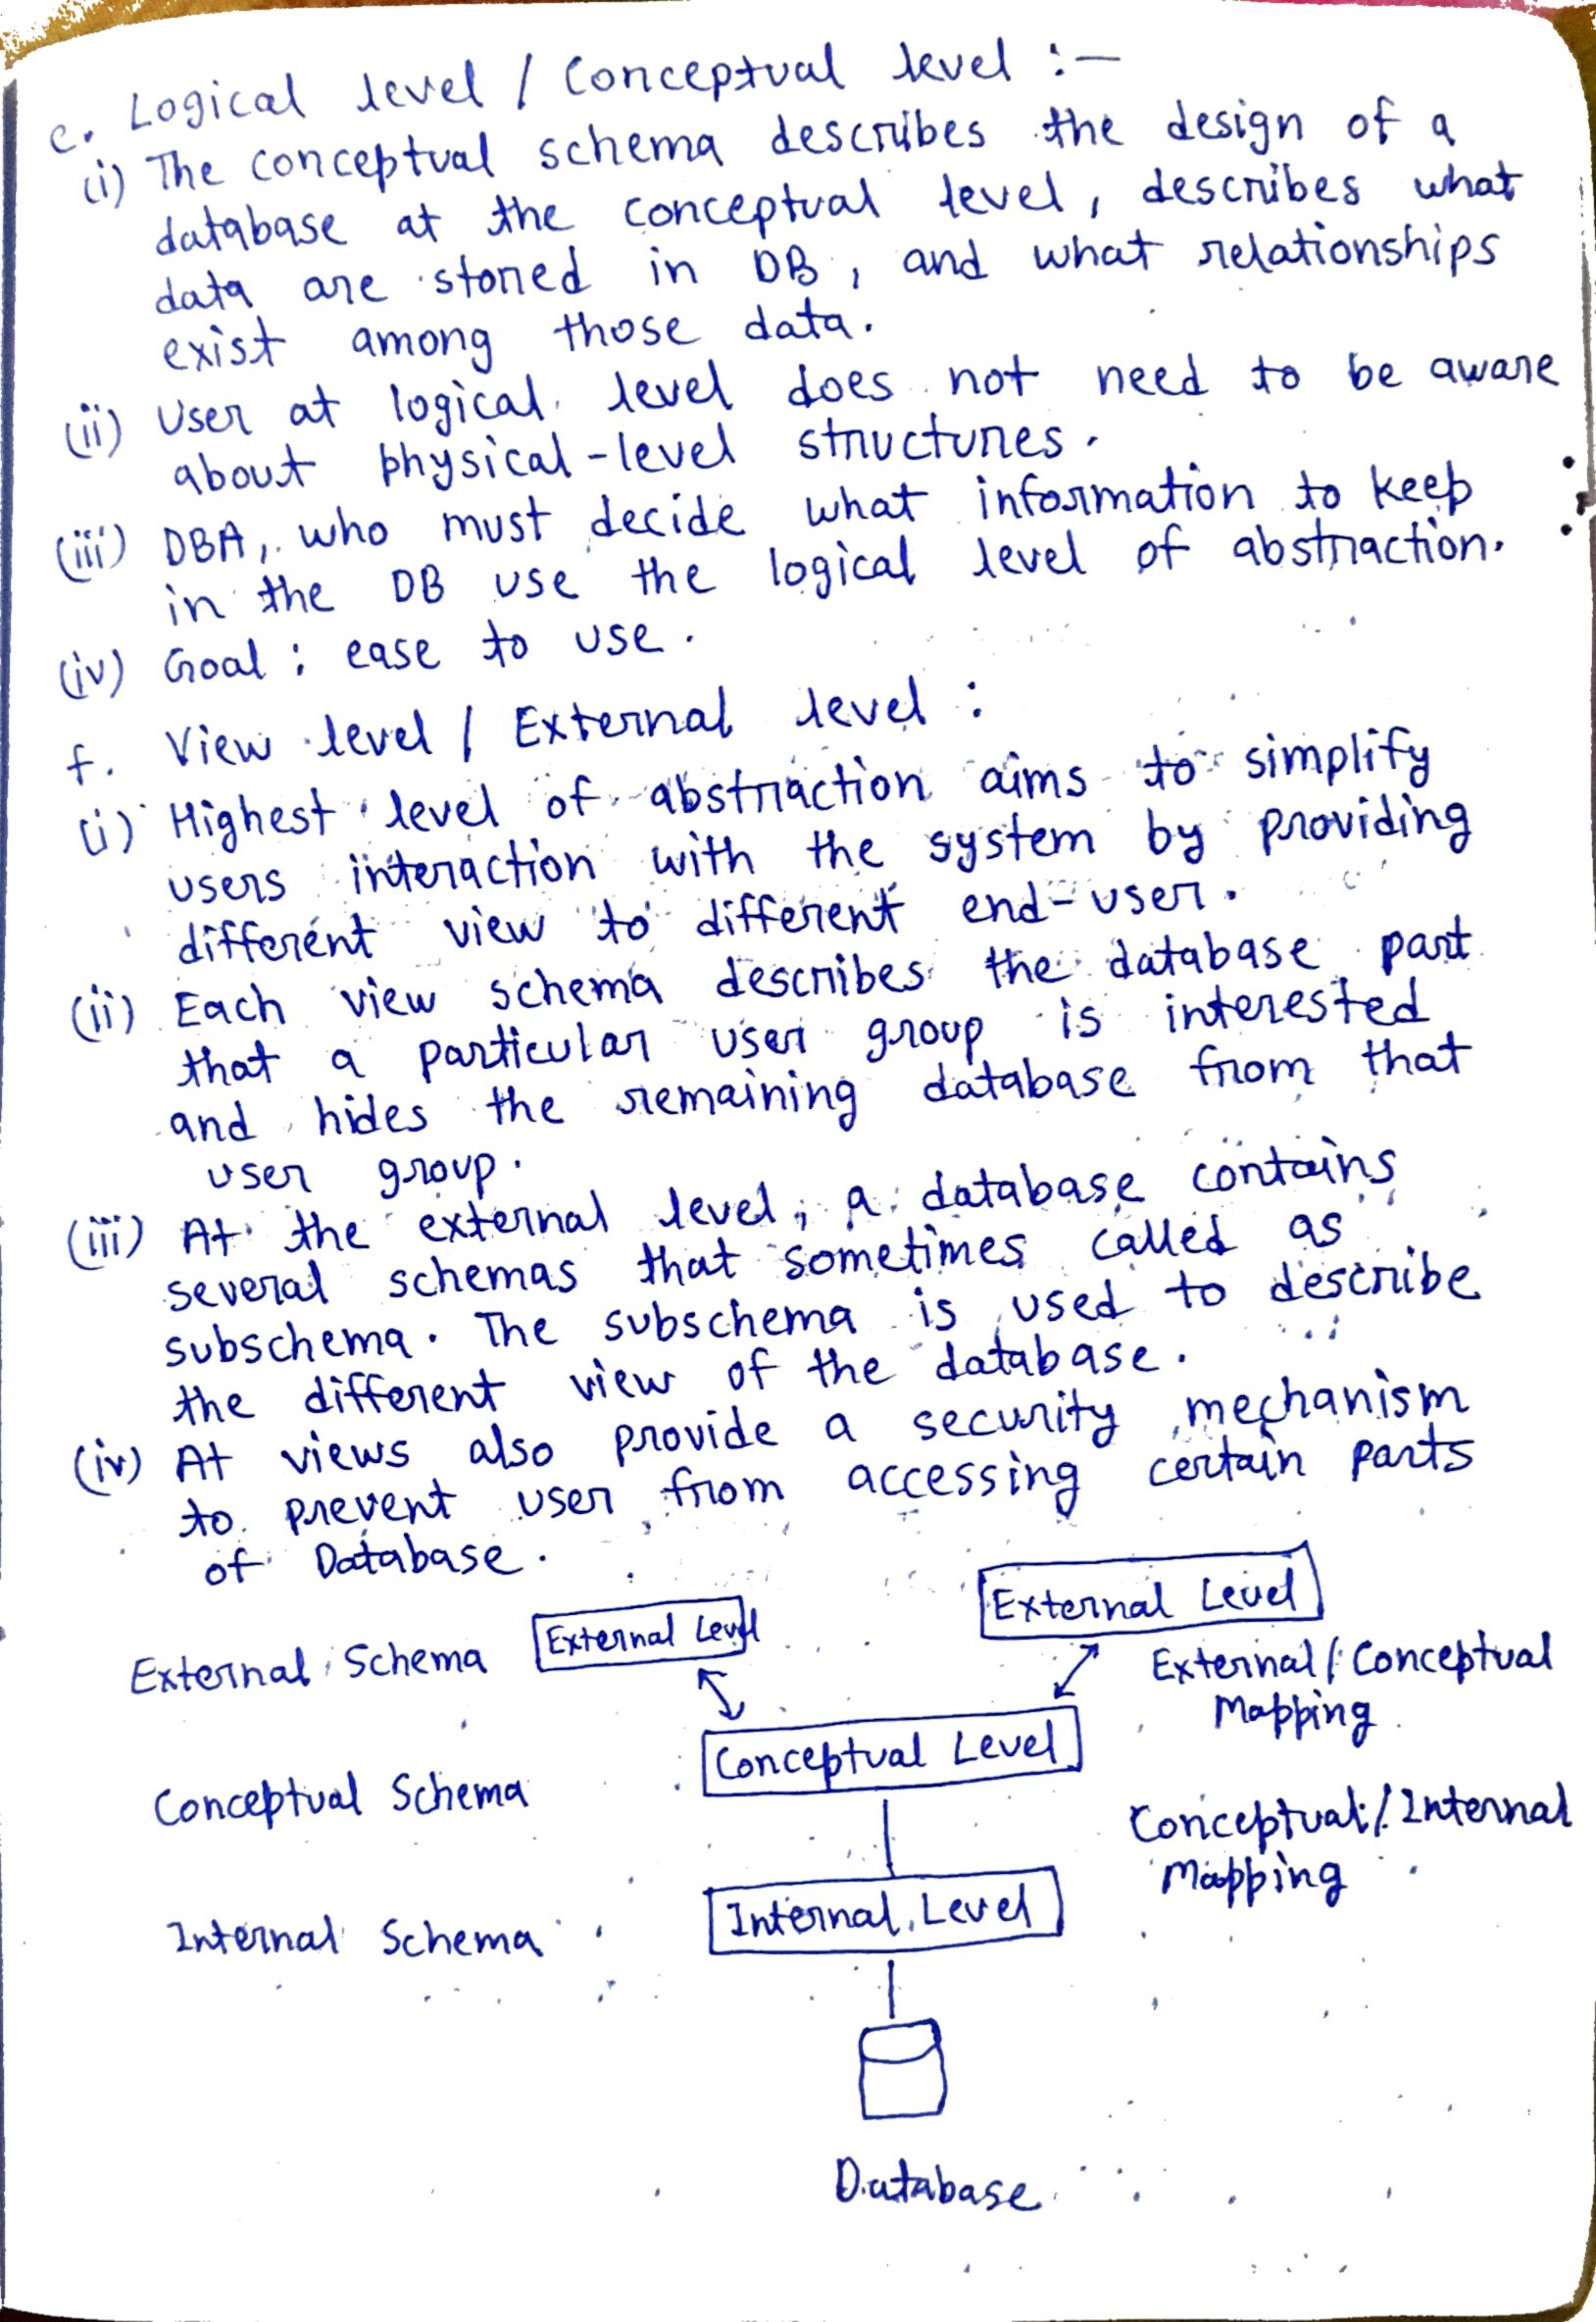 e. Logical level / Conceptual level :-
(i) The conceptual schema describes the design of a
database at the conceptual level, describes what
data are stored in DB, and what relationships
exist among those data.
(ii) User at logical level does not need to be aware
about physical-level structures.
(iii) DBA, who must decide what information to keep
in the DB use the logical level of abstraction.
(iv) Goal : ease to use.
f. View level / External level :
(i) Highest level of abstraction aims to simplify
users interaction with the system by providing
different view to different end-user.
(ii) Each view schema describes the database part
that a particular user group is interested
and hides the remaining database from that
user group.
(iii) At the external level, a database contains
several schemas that sometimes called as
subschema. The subschema is used to describe
the different view of the database.
(iv) At views also provide a security mechanism
to prevent user from accessing certain parts
of Database.
External Level
External Schema External Level
External / Conceptual
Mapping
Conceptual Level
Conceptual Schema
Conceptual / Internal
Mapping
Internal Level
Internal Schema
Database